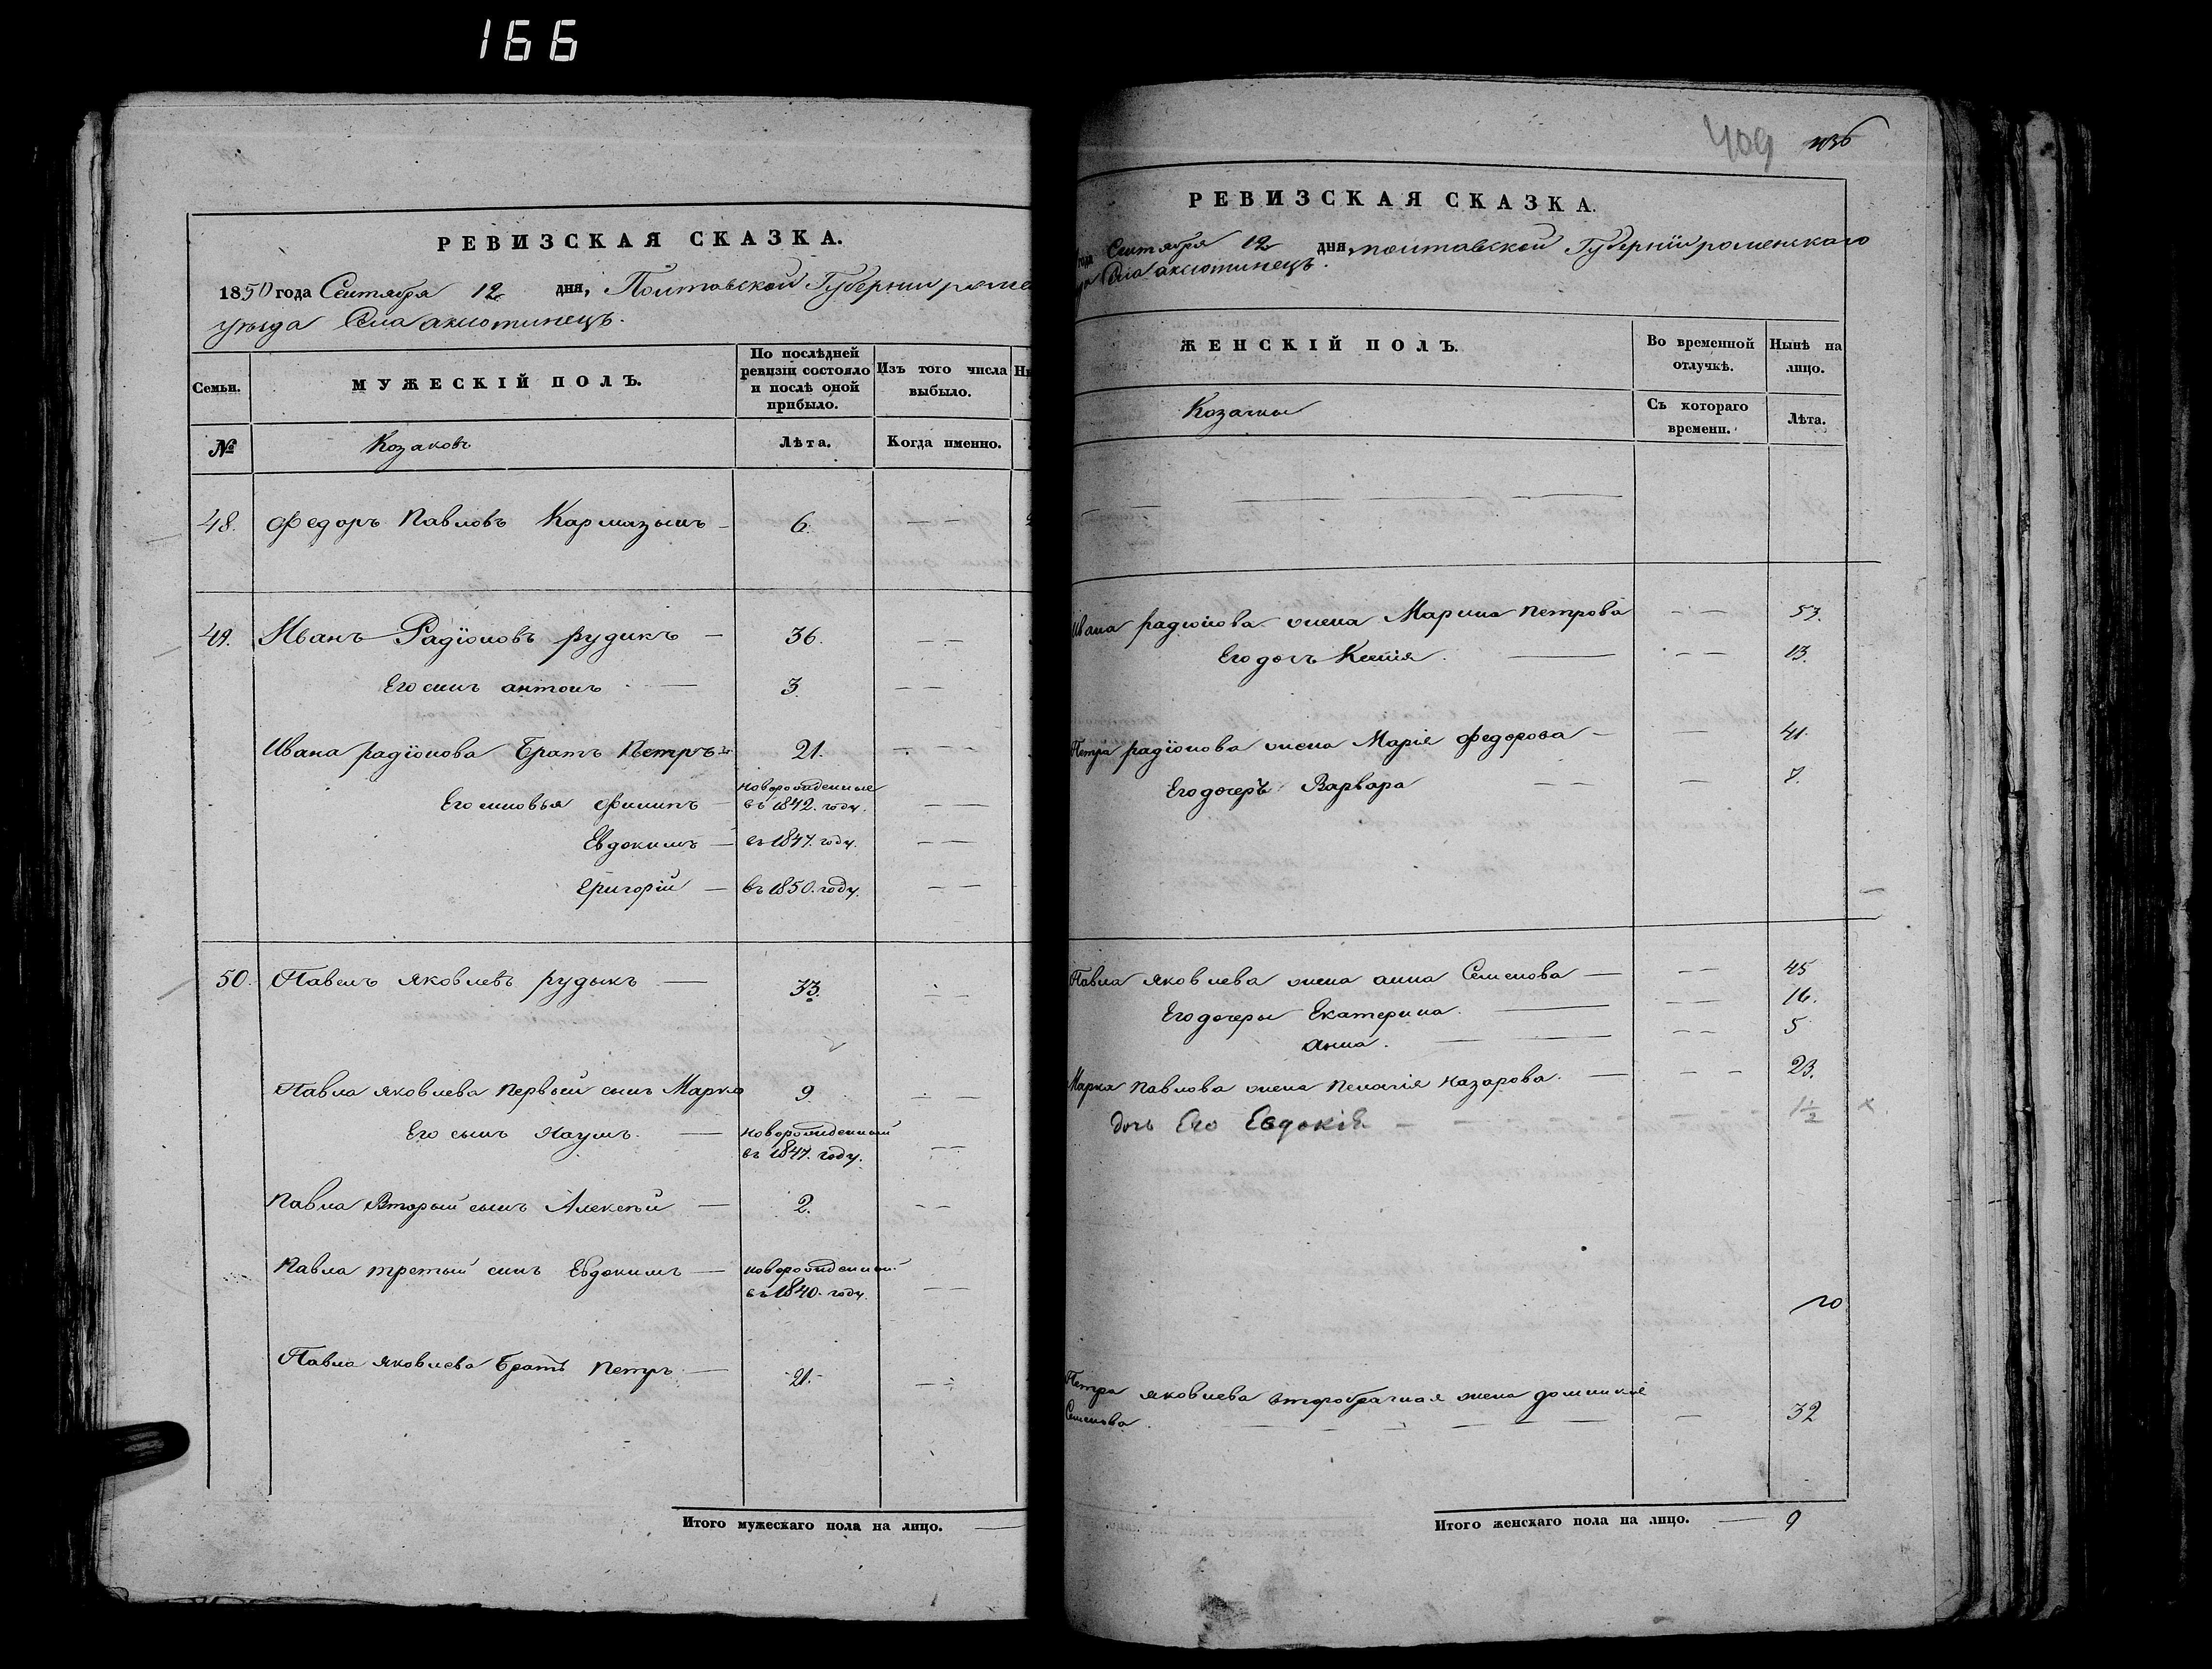 166
РЕВИЗСКАЯ СКАЗКА.
1850 года Сентября 12 дня, Полтавской Губернии роме
уѣзда Села аксютинецъ.
Семьи.
МУЖЕСКІЙ ПОЛЪ.
По послѣдней ревизіи состояло и послѣ оной прибыло.
Изъ того числа выбыло.
№
Козаковъ
Лѣта.
Когда именно.
48. Федоръ Павловъ Кармазынъ 6.
49. Иванъ Радіоновъ рудикъ 36.
Его сынъ антонъ 3.
Ивана радіонова Братъ Петръ 21.
Его сыновья Филипъ новорожденные въ 1842. году.
Евдокимъ въ 1847. году.
Григорій въ 1850. году.
50. Павелъ яковлевъ рудыкъ 33.
Павла яковлева первый сынъ Марко 9.
Его сынъ Наумъ новорожденный въ 1847. году.
Павла Вторый сынъ Алексѣй 2.
Павла третый сынъ Евдокимъ новорожденный въ 1840. году.
Павла яковлева Братъ Петръ 21.
Итого мужескаго пола на лицо.
409
РЕВИЗСКАЯ СКАЗКА.
года Сентября 12 дня, полтавской Губерніи роменскаго
Села аксютинецъ.
ЖЕНСКІЙ ПОЛЪ.
Во временной отлучкѣ.
Нынѣ на лицо.
Козачки
Съ котораго времени.
Лѣта.
Ивана радіонова жена Марина петрова 53.
Его дочъ Ксенія 13.
Петра радіонова жена Марія федорова 41.
Его дочеръ Варвара
Павла яковлева жена анна Семенова 45
Его дочеры Екатерина 16.
анна. 5
Марка павлова жена пелагія назарова 23.
дочь Его Евдокія 1 1/2
Петра яковлева второбрачная жена домникія
Семенова 32
Итого женскаго пола на лицо. 9